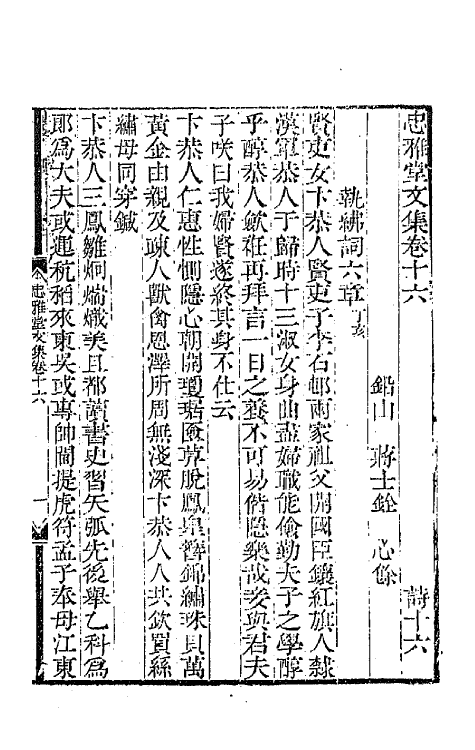 忠雅堂文集卷十六
鉛山　蔣士銓　心餘　詩十六
執紼詞六章丁亥
賢吏女卞恭人賢吏子李石邨兩家祖父開國臣鑲紅旗人隸
漢軍恭人于歸時十三淑女身曲盡婦職能儉勤夫子之學醇
乎醇恭人斂衽再拜言一日之養不可易偕隱樂哉妾與君夫
子咲曰我婦賢遂終其身不仕云
卞恭人仁惠性惻隱心朝開瓊琚匳草脫鳳皇簪錦繡珠貝萬
黃金由親及疎人獸禽恩澤所周無淺深卞恭人人共欽買絲
繡母同穿鍼
卞恭人三鳳雛炯熾美且都讀書史習矢弧先後舉乙科爲
郎爲大夫或運秔稻來東吳或專帥閫提虎符孟子奉母江東
忠雅堂文集卷十六
一